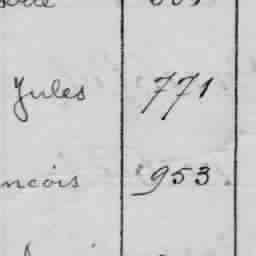 Jules 771
ncois 953